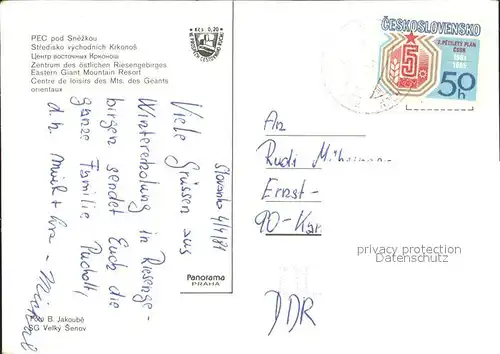 PEC pod Sněžkou
Středisko východních Krkonoš
Центр восточных Крконош
Zentrum des östlichen Riesengebirges
Eastern Giant Mountain Resort
Centre de loisirs des Mts. des Géants
orientaux
Kčs 0,20
ČESKOSLOVENSKO
7. PĚTILETÝ PLÁN
ČSSR
1981
1985
5
50h
4/4/81
Viele Grüssen aus
Wintererholung in Riesenge-
birgen sendet Euch die
ganze Familie
d.h.
An
Rudi
Ernst-
90-
DDR
privacy protection
watermark
Panorama
PRAHA
Foto B. Jakoubě
SG Velký Šenov